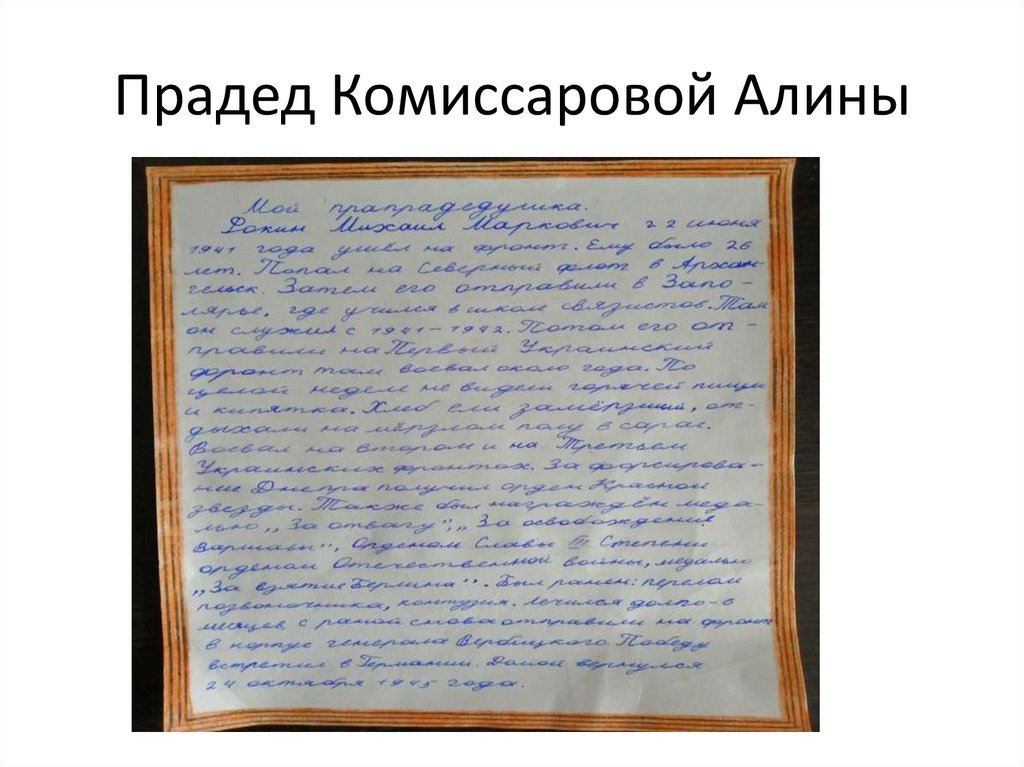 Прадед Комиссаровой Алины
Мой прапрадедушка.
Фокин Михаил Маркович 22 июня
1941 года ушёл на фронт. Ему было 26
лет. Попал на Северный флот в Архан-
гельск. Затем его отправили в Запо-
лярье, где учился в школе связистов. Там
он служил с 1941-1942. Потом его от-
правили на Первый Украинский
форонт там воевал около года. По
целой неделе не видели горячей пищи
и кипятка. Хлеб ели замёрзший, от-
дыхали на мёрзлом полу в сарае.
Воевал на втором и на Третьем
Украинских фронтах. За форсирова-
ние Днепра получил орден Красной
звезды. Также был награждён меда-
лью „За отвагу", „За освобождение
Варшавы", Орденом Славы III Степени
орденом Отечественной войны, медалью
„За взятие Берлина". Был ранен: перелом
позвоночника, контузия. Лечился долго-6
месяцев, с раной снова отправили на фронт
в корпус генерала Вербицкого. Победу
встретил в Германии. Домой вернулся
24 октября 1945 года.